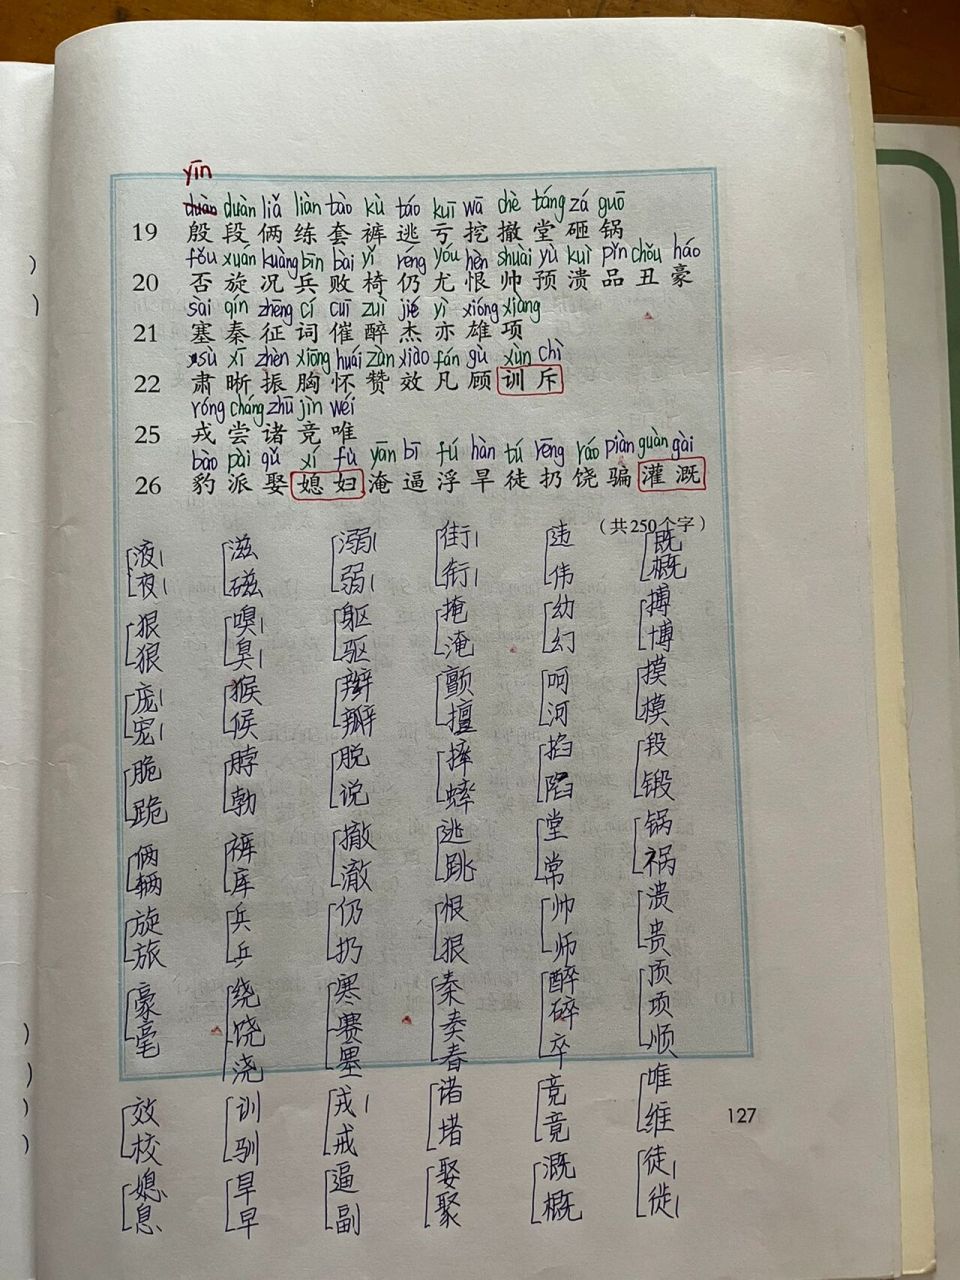 yīn
duàn duàn liǎ liàn tào kù táo kuī wā chè táng zá guō
19 殷 段 俩 练 套 裤 逃 亏 挖 撤 堂 砸 锅
fǒu xuán kuàng bīn bài yǐ réng yóu hèn shuài yù kuì pǐn chǒu háo
20 否 旋 况 兵 败 椅 仍 尤 恨 帅 预 溃 品 丑 豪
sāi qín zhēng cí cuī zuì jié yì xióng xiàng
21 塞 秦 征 词 催 醉 杰 亦 雄 项
sù xī zhèn xiōng huái zàn xiào fán gù xùn chì
22 肃 晰 振 胸 怀 赞 效 凡 顾 训 斥
róng cháng zhū jìng wéi
25 戎 尝 诸 竞 唯
bào pài qǔ xí fù yān bī fú hàn tú rēng ráo piàn guàn gài
26 豹 派 娶 媳 妇 淹 逼 浮 旱 徒 扔 饶 骗 灌 溉
（共250个字）
液 滋 溺 街 违 既
夜 磁 弱 衔 伟 概
狠 嗅 躯 掩 幼 搏
狼 臭 驱 淹 幻 博
庞 猴 辩 颤 呵 摸
宠 候 瓣 擅 河 模
脆 脖 脱 摔 掐 段
跪 勃 说 蟀 陷 锻
俩 裤 撤 逃 堂 锅
辆 库 澈 跳 常 祸
旋 兵 仍 恨 帅 溃
旅 乒 扔 狠 师 贵
豪 绕 寒 秦 醉 顶
毫 饶 赛 奏 碎 项
浇 墨 春 卒 顺
效 训 戎 诸 竞 唯
校 驯 戒 堵 竟 维
媳 旱 逼 娶 溉 徒
息 早 副 聚 概 徙
127